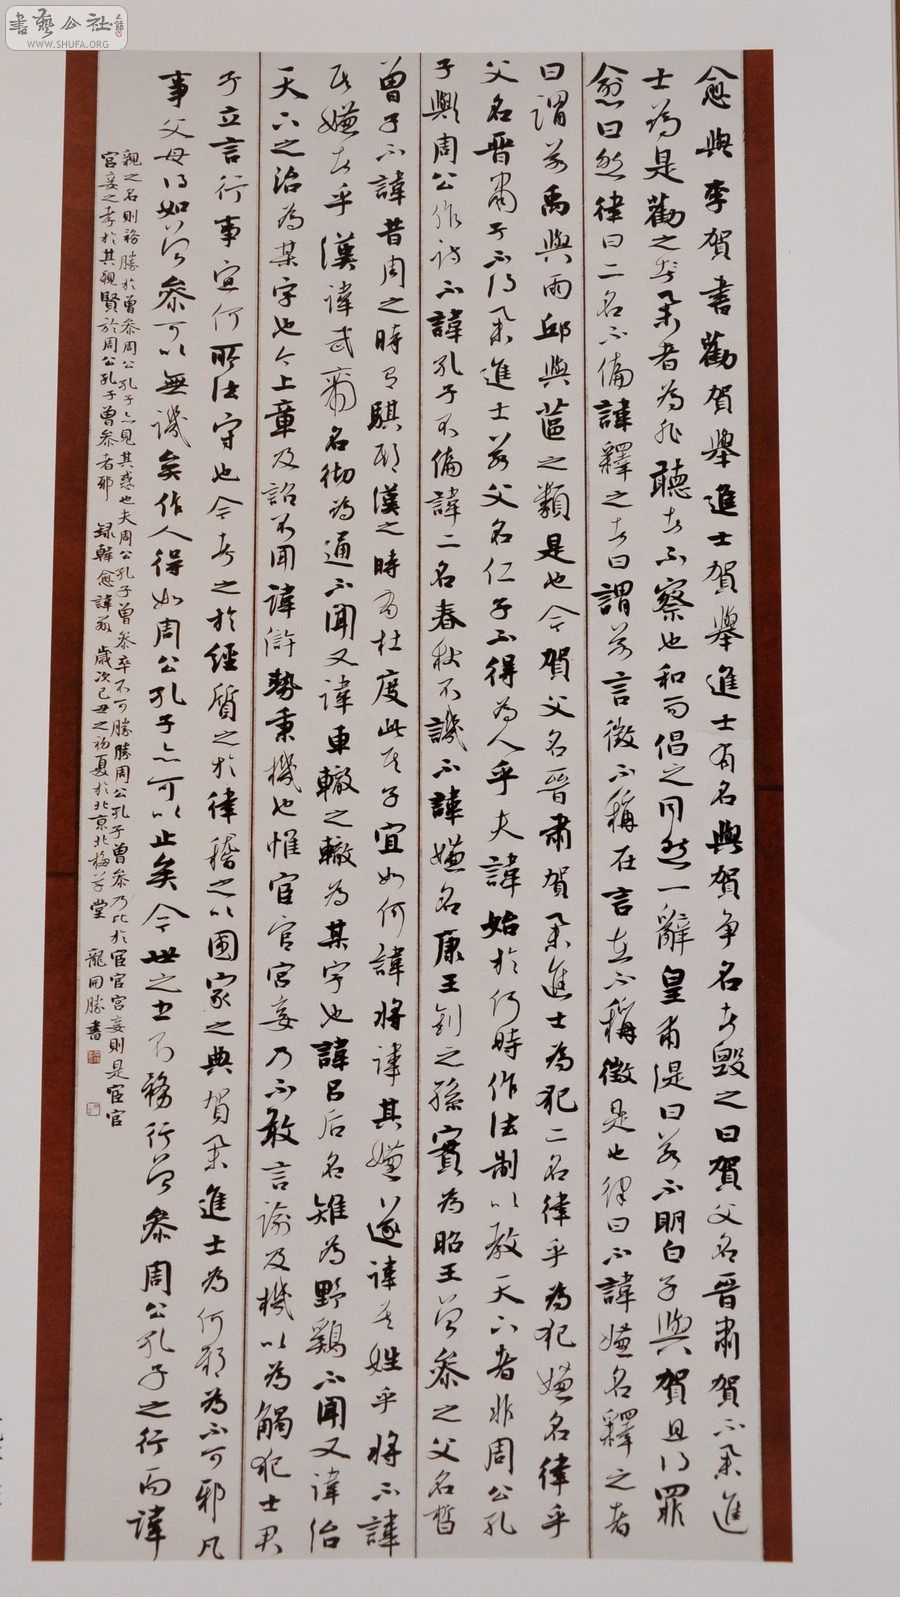 書藝公社
WWW.SHUFA.ORG
愈與李賀書勸賀舉進士賀舉進士有名與賀爭名者毀之曰賀父名晉肅賀不舉進
士為是勸之舉者為非聽者不察也和而倡之同然一辭皇甫湜曰若不明白子與賀且得罪
愈曰然律曰二名不偏諱釋之者曰謂若言徵不稱在言在不稱徵是也律曰不諱嫌名釋之者
曰謂若禹與雨邱與蓲之類是也今賀父名晉肅賀舉進士為犯二名律乎為犯嫌名律乎
父名晉肅子不得舉進士若父名仁子不得為人乎夫諱始於何時作法制以教天下者非周公孔
子歟周公作詩不諱孔子不偏諱二名春秋不譏不諱嫌名康王釗之孫實為昭王曾參之父名晳
曾子不諱昔周之時有騏期漢之時有杜度此其子宜如何諱將諱其嫌遂諱其姓乎將不諱
其嫌者乎漢諱武帝名徹為通不聞又諱車轍之轍為某字也諱呂后名雉為野雞不聞又諱治
天下之治為某字也今上章及詔不聞諱滸勢秉機也惟宦官宮妾乃不敢言諭及機以為觸犯士君
子立言行事宜何所法守也今考之於經質之於律稽之以國家之典賀舉進士為可邪為不可邪凡
事父母得如曾參可以無譏矣作人得如周公孔子亦可以止矣今世之士不務行曾參周公孔子之行而諱
親之名則務勝於曾參周公孔子亦見其惑也夫周公孔子曾參卒不可勝勝周公孔子曾參乃比於宦官宮妾則是宦官
宮妾之孝於其親賢於周公孔子曾參者邪 錄韓愈諱辯 歲次己丑之初夏於北京北梅草堂 龍開勝書